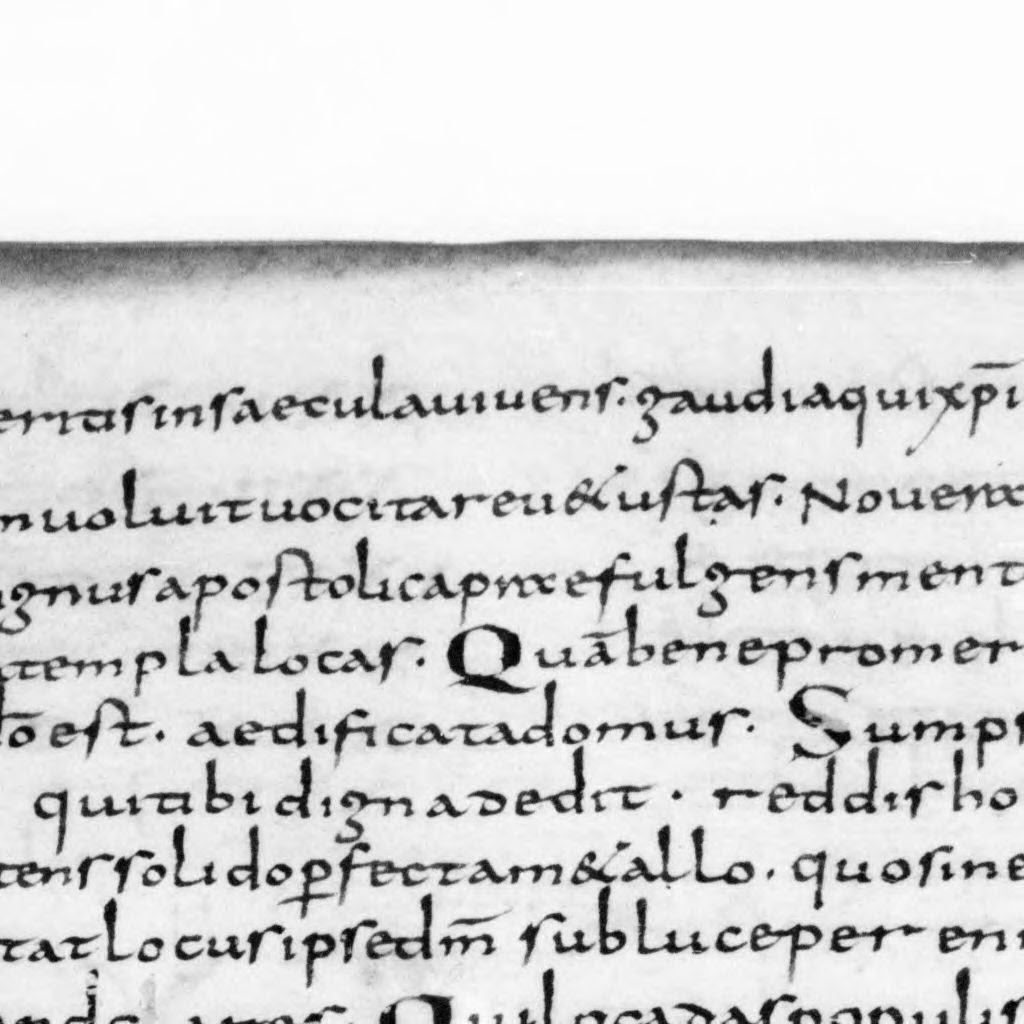 eritis in saecula uiuens. gaudia qui xp̄i
uoluit uocitare u&ustas. Nouem
ignus apostolica praefulgens ment
templa locas. Quā bene promer
est. aedificata domus. Sumps
qui tibi digna dedit. reddis ho
tens solido p̱fectam&allo. quo sine
tat locus ipse dm̄ sub luce per en